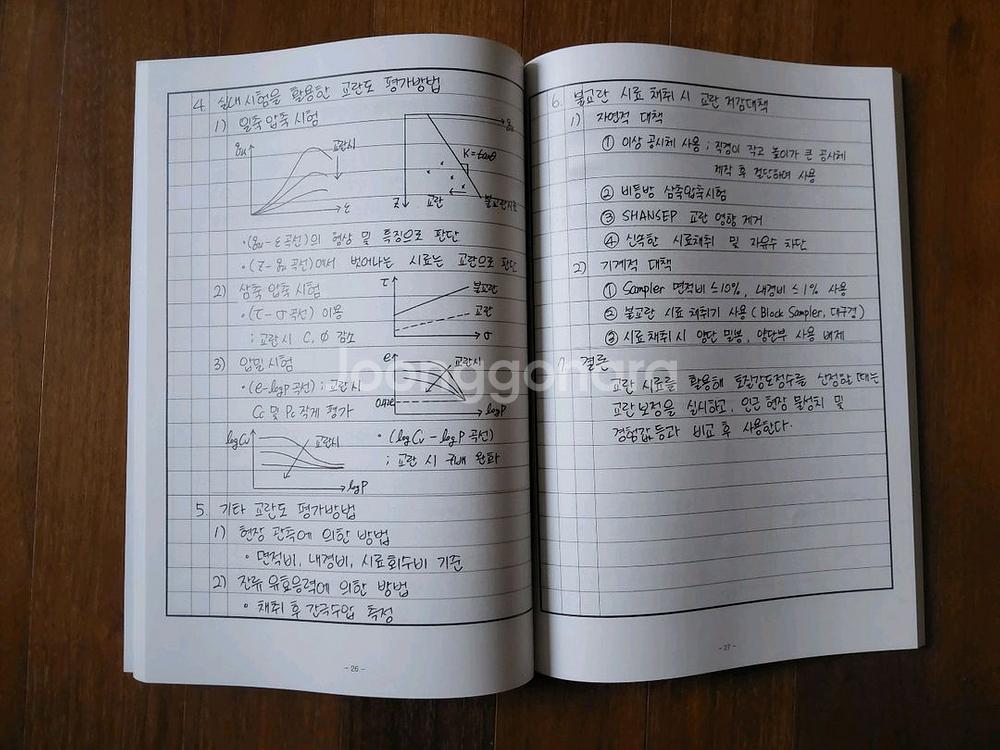 4. 실내시험을 활용한 교란도 평가방법
1) 일축압축시험
qu
교란시
ε
qu
K=tanθ
Z
교란
불교란시료
• (qu-ε곡선)의 형상 및 특징으로 판단
• (Z-qu 곡선)에서 벗어나는 시료는 교란으로 판단
2) 삼축압축시험
• (τ-σ곡선) 이용
; 교란시 C, Ø 감소
τ
불교란
교란
σ
3) 압밀시험
• (e-logP곡선) ; 교란시
Cc 및 Pc 작게 평가
e
교란시
0.42e
logP
logCv
교란시
logP
• (logCv-logP 곡선)
; 교란 시 구배 완화
5. 기타 교란도 평가방법
1) 현장 관측에 의한 방법
• 면적비, 내경비, 시료회수비 기준
2) 잔류 유효응력에 의한 방법
• 채취 후 간극수압 측정
- 26 -
6. 불교란 시료 채취 시 교란 저감대책
1) 자연적 대책
① 이상 공시체 사용 ; 직경이 작고 높이가 큰 공시체
제작 후 절단하여 사용
② 비등방 삼축압축시험
③ SHANSEP 교란 영향 제거
④ 신속한 시료채취 및 자유수 차단
2) 기계적 대책
① Sampler 면적비≤10%, 내경비≤1% 사용
② 불교란 시료 채취기 사용 (Block Sampler, 대구경)
③ 시료 채취 시 양단 밀봉, 양단부 사용 배제
결론
교란 시료를 활용해 토질강도정수를 산정할 때는
교란보정을 실시하고, 인근 현장 물성치 및
경험값등과 비교 후 사용한다.
- 27 -
joonggonara